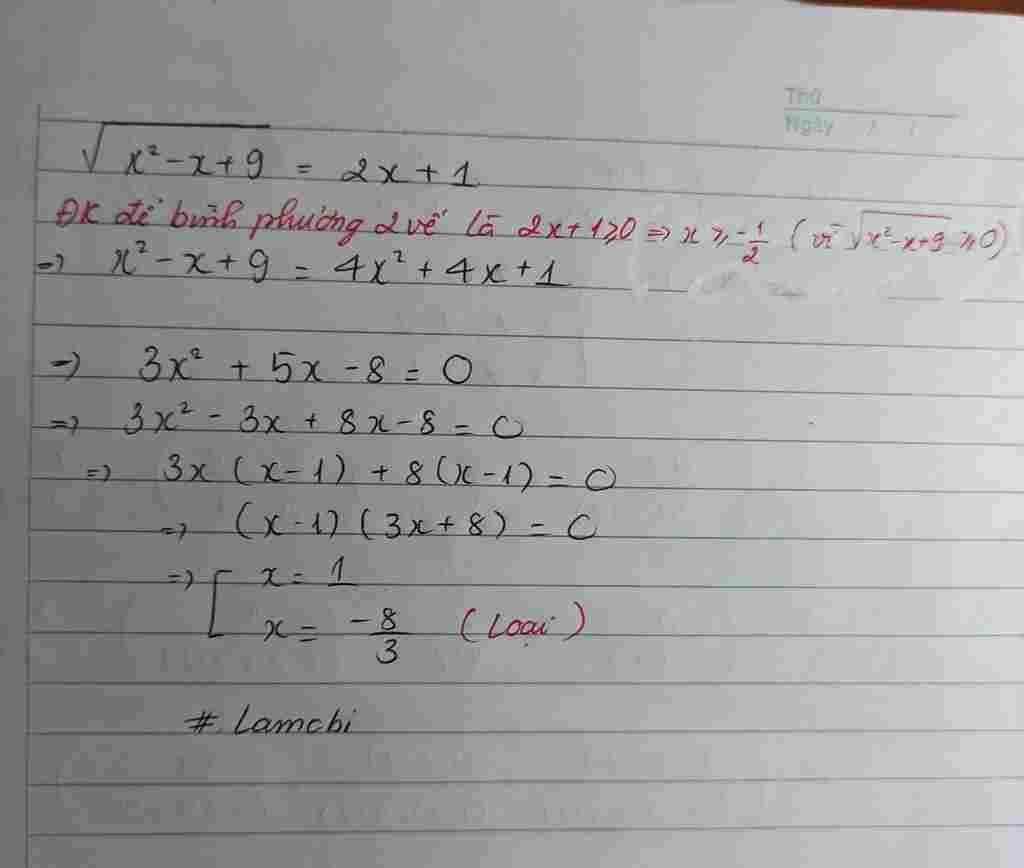 Thứ
Ngày / /
√(x² - x + 9) = 2x + 1
ĐK để bình phương 2 vế là 2x + 1 ≥ 0 => x ≥ -1/2 (vì √(x² - x + 9) ≥ 0)
=> x² - x + 9 = 4x² + 4x + 1
=> 3x² + 5x - 8 = 0
=> 3x² - 3x + 8x - 8 = 0
=> 3x (x - 1) + 8 (x - 1) = 0
=> (x - 1) (3x + 8) = 0
=> [ x = 1
x = -8/3 (Loại)
# Lamchi